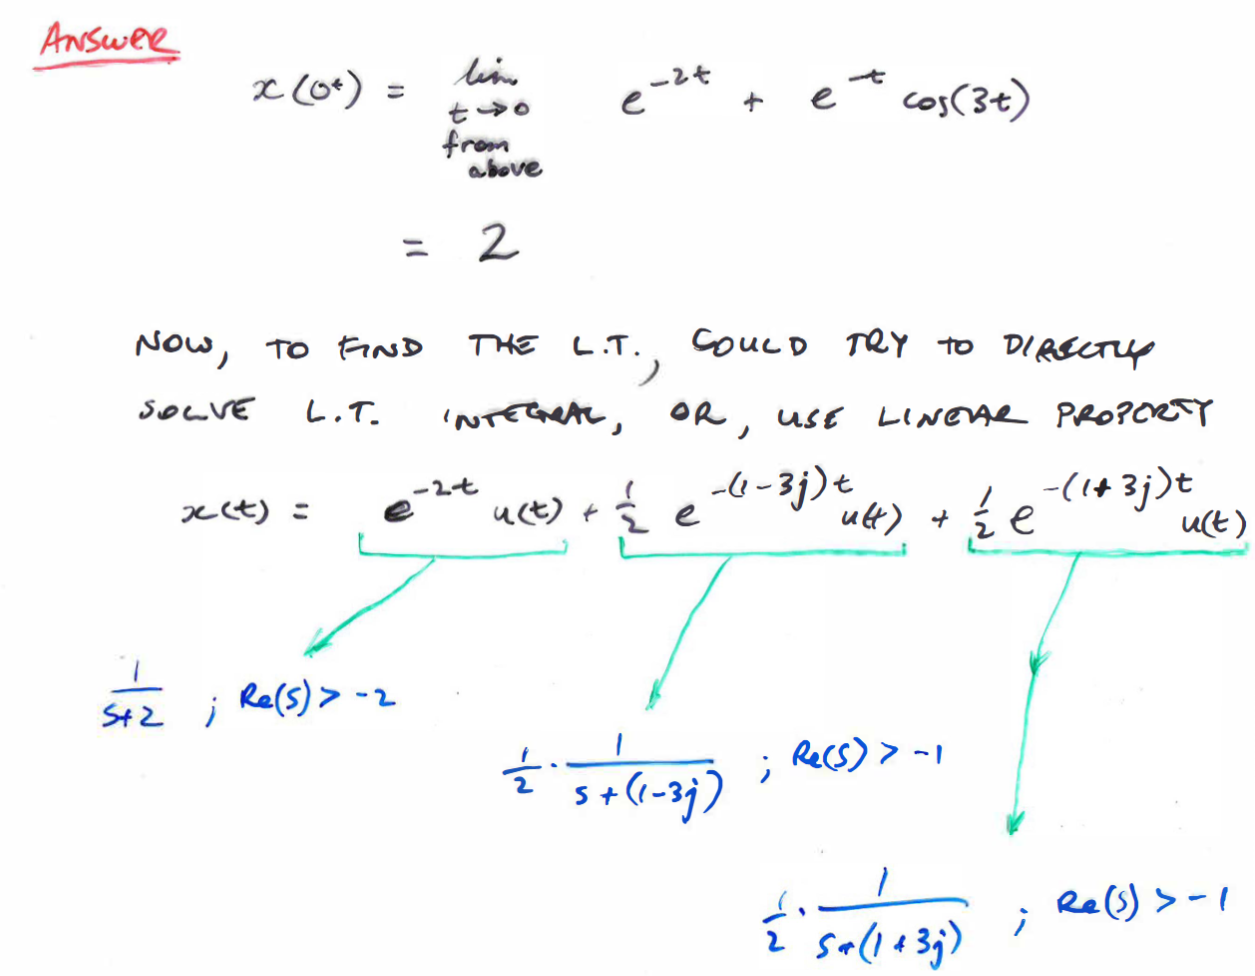 ANSWER
x(0⁺) = lim e^{-2t} + e^{-t} cos(3t)
t→0
from
above
= 2
NOW, TO FIND THE L.T., COULD TRY TO DIRECTLY
SOLVE L.T. INTEGRAL, OR, USE LINEAR PROPERTY
x(t) = e^{-2t} u(t) + 1/2 e^{-(1-3j)t} u(t) + 1/2 e^{-(1+3j)t} u(t)
1/(s+2) ; Re(s) > -2
1/2 · 1/(s+(1-3j)) ; Re(s) > -1
1/2 · 1/(s+(1+3j)) ; Re(s) > -1